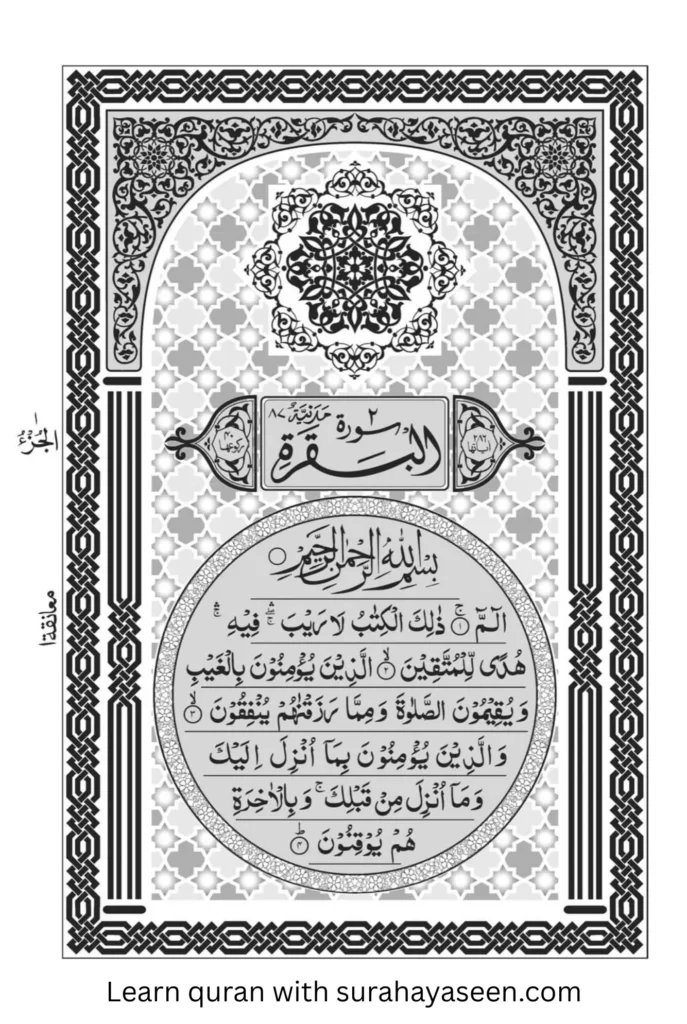 سُوْرَةُ ٢ مَدَنِيَّةٌ ٨٧
الْبَقَرَةِ
اٰيَاتُهَا ٢٨٦
رُكُوْعَاتُهَا ٤٠
الجُزْءُ ١
بِسْمِ اللّٰهِ الرَّحْمٰنِ الرَّحِيْمِ
الٓمّٓ ۚ﴿۱﴾ ذٰلِكَ الْكِتٰبُ لَا رَيْبَ ۛۖ فِيْهِ ۛۚ
هُدًى لِّلْمُتَّقِيْنَ ۙ﴿۲﴾ الَّذِيْنَ يُؤْمِنُوْنَ بِالْغَيْبِ
وَيُقِيْمُوْنَ الصَّلٰوةَ وَمِمَّا رَزَقْنٰهُمْ يُنْفِقُوْنَ ۙ﴿۳﴾
معانقة ١
وَالَّذِيْنَ يُؤْمِنُوْنَ بِمَاۤ اُنْزِلَ اِلَيْكَ
وَمَاۤ اُنْزِلَ مِنْ قَبْلِكَ ۚ وَبِالْاٰخِرَةِ
هُمْ يُوْقِنُوْنَ ؕ﴿۴﴾
Learn quran with surahayaseen.com